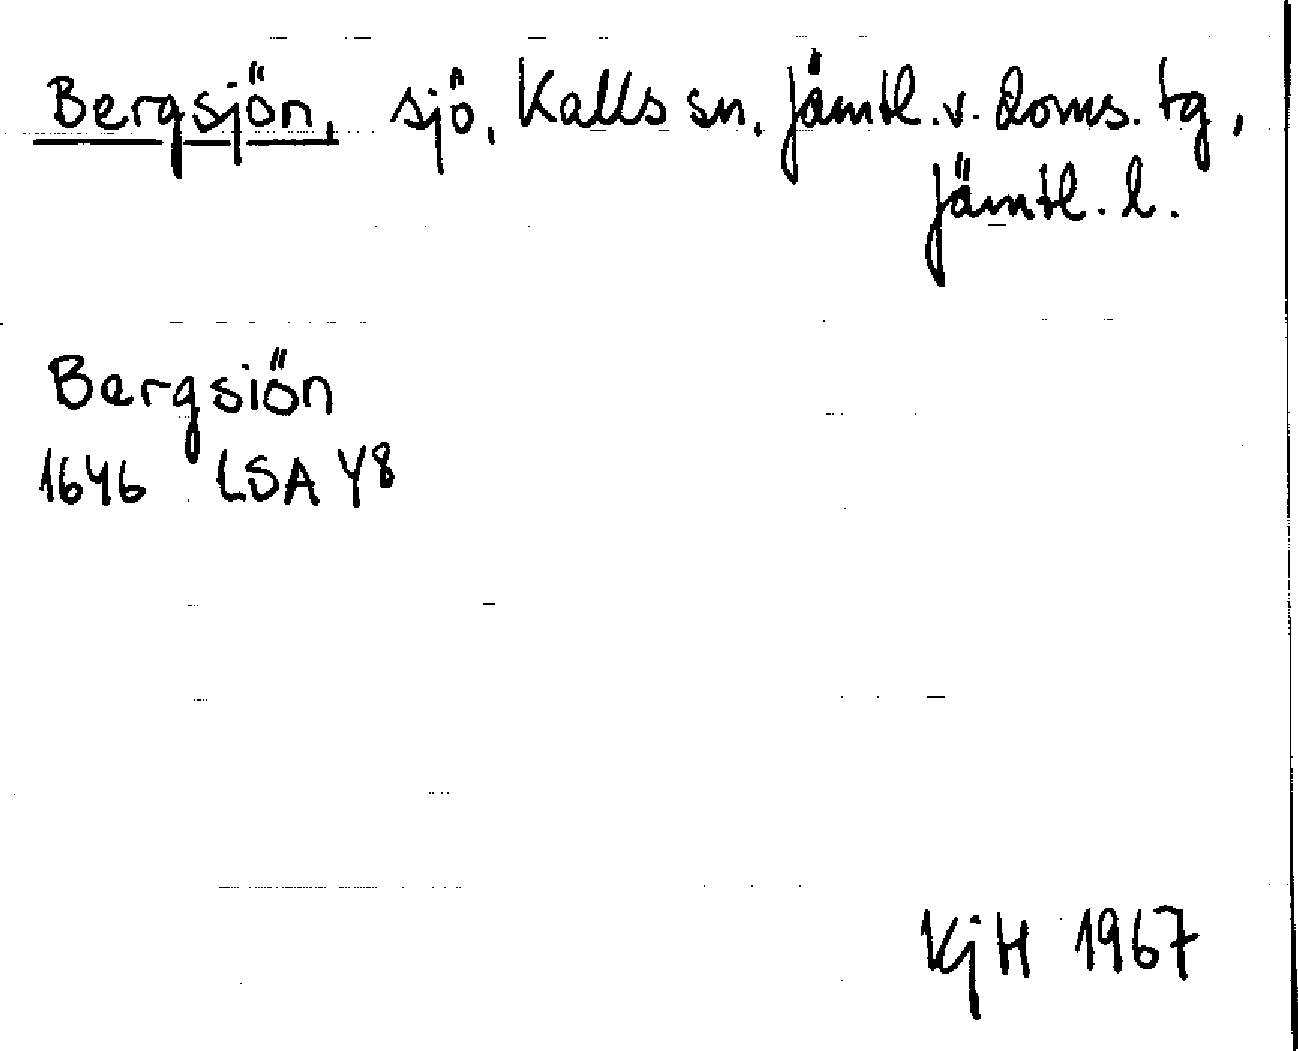 Bergsjön, sjö, Kalls sn, Jämtl. v. doms. tg,
Jämtl. l.
Bergsiön
1646 LSA Y8
KjH 1967